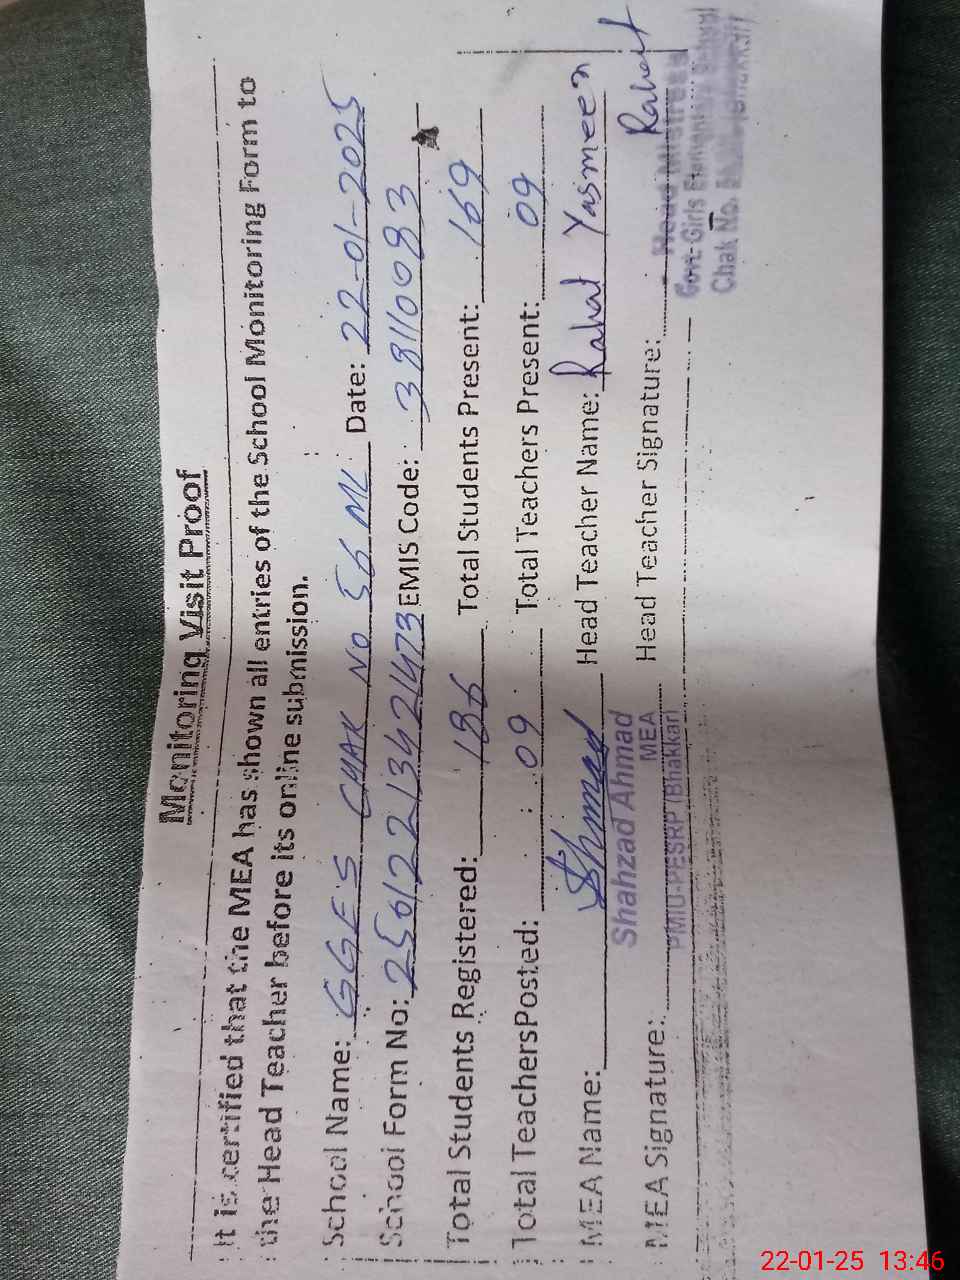 Monitoring Visit Proof
It is certified that the MEA has shown all entries of the School Monitoring Form to
the Head Teacher before its online submission.
School Name: GGES CHAK No 56 ML Date: 22-01-2025
School Form No: 25012213421473 EMIS Code: 38110083
Total Students Registered: 186 Total Students Present: 169
Total TeachersPosted: 09 Total Teachers Present: 09
MEA Name: Head Teacher Name: Rahat Yasmeen
Shahzad Ahmad
MEA
PMIU-PESRP (Bhakkar)
MEA Signature: Head Teacher Signature: Rahat
Head Mistress
Govt: Girls Elementary School
Chak No.
22-01-25 13:46